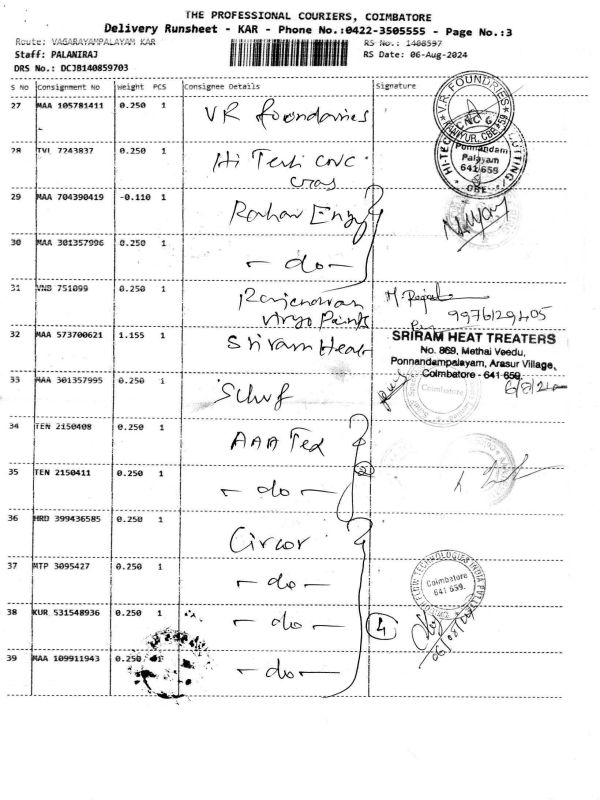 THE PROFESSIONAL COURIERS, COIMBATORE
Delivery Runsheet - KAR - Phone No.:0422-3505555 - Page No.:3
Route: VAGARAYAMPALAYAM KAR
RS No.: 1408597
Staff: PALANIRAJ
RS Date: 06-Aug-2024
DRS No.: DCJB140859703
S No Consignment No Weight PCS Consignee Details Signature
27 MAA 105781411 0.250 1 VR foundaries
V.R. FOUNDRIES
28 TVL 7243837 0.250 1 Hi Tech CNC
Ponnandam
Palayam
641 659
29 MAA 704390419 -0.110 1 Rahav Engg
30 MAA 301357996 0.250 1 - do -
31 VNB 751099 0.250 1
Paints
9976129405
32 MAA 573700621 1.155 1 Sriram Heat
SRIRAM HEAT TREATERS
No. 869, Methai Veedu,
Ponnandampalayam, Arasur Village,
Coimbatore - 641 659.
6/8/24
33 MAA 301357995 0.250 1
Coimbatore
34 TEN 2150408 0.250 1 AAA Tex
35 TEN 2150411 0.250 1 - do -
2
36 HRD 399436585 0.250 1 Circor
37 MTP 3095427 0.250 1 - do -
CIRCOR FLOW TECHNOLOGIES INDIA PVT LTD
Coimbatore
641 659.
38 KUR 531548936 0.250 1 - do -
4
06/08/24
39 MAA 109911943 0.250 1 - do -